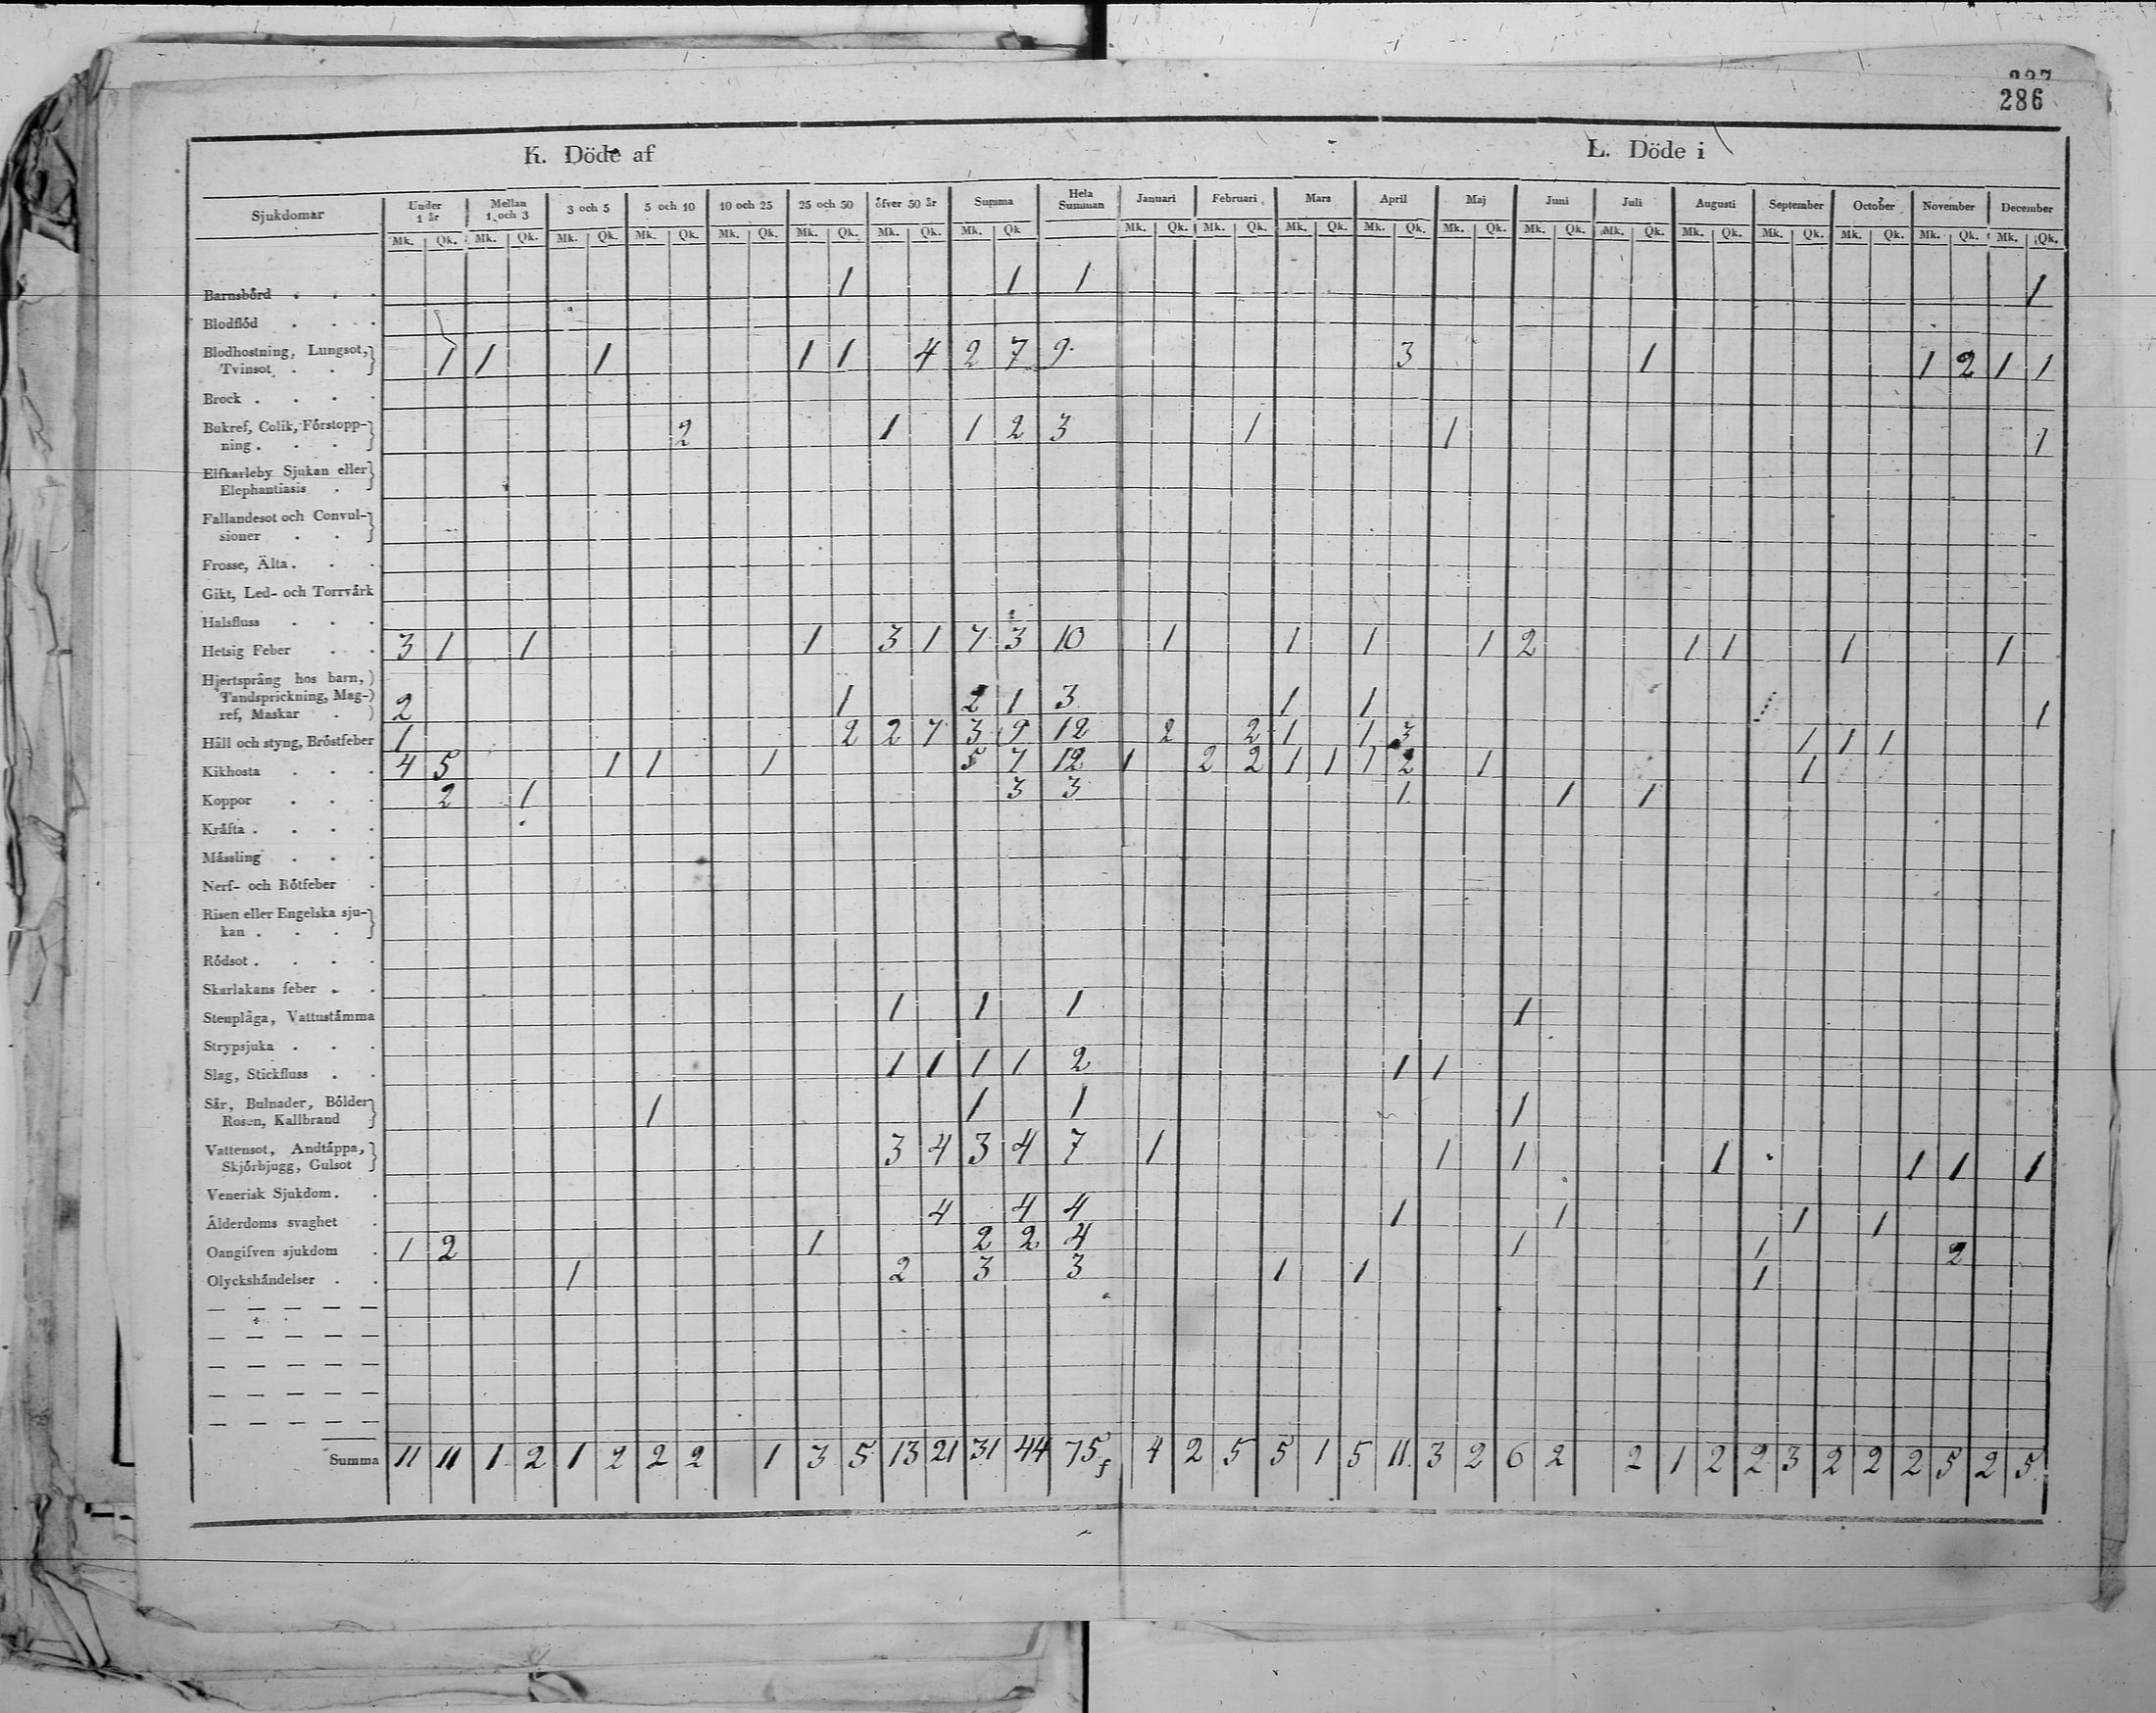 237
286
K. Döde af L. Döde i
Sjukdomar Under 1 år Mellan 1 och 3 3 och 5 5 och 10 10 och 25 25 och 50 öfver 50 år Summa Hela Summan Januari Februari Mars April Maj Juni Juli Augusti September October November December
Mk. Qk. Mk. Qk. Mk. Qk. Mk. Qk. Mk. Qk. Mk. Qk. Mk. Qk. Mk. Qk Mk. Qk. Mk. Qk. Mk. Qk. Mk. Qk. Mk. Qk. Mk. Qk. Mk. Qk. Mk. Qk. Mk. Qk. Mk. Qk. Mk. Qk. Mk. Qk.
Barnsbörd . . . 1 1 1 1
Blodflöd . . .
Blodhostning, Lungsot,
Tvinsot . . 1 1 1 1 1 4 2 7 9 3 1 1 2 1 1
Brock . . . .
Bukref, Colik, Förstopp-
ning . . . 2 1 1 2 3 1 1 1
Elfkarleby Sjukan eller
Elephantiasis .
Fallandesot och Convul-
sioner . .
Frosse, Älta . . .
Gikt, Led- och Torrvärk
Halsfluss . . .
Hetsig Feber . . 3 1 1 1 3 1 7 3 10 1 1 1 1 2 1 1 1 1
Hjertsprång hos barn,
Tandsprickning, Mag-
ref, Maskar . 2 1 2 1 3 1 1 1
Håll och styng, Bröstfeber 1 2 2 7 3 9 12 2 2 1 1 3 1 1 1
Kikhosta . . . 4 5 1 1 1 5 7 12 1 2 2 1 1 1 2 1 1
Koppor . . . 2 1 3 3 1 1 1
Kräfta . . . .
Mässling . . .
Nerf- och Rötfeber .
Risen eller Engelska sju-
kan . . .
Rödsot . . . .
Skarlakans feber . .
Stenplåga, Vattustämma 1 1 1 1
Strypsjuka . . .
Slag, Stickfluss . . 1 1 1 1 2 1 1
Sår, Bulnader, Bölder
Rosen, Kallbrand 1 1 1 1
Vattensot, Andtäppa,
Skjörbjugg, Gulsot 3 4 3 4 7 1 1 1 1 1 1 1
Venerisk Sjukdom . .
Ålderdoms svaghet . 4 4 4 1 1 1 1
Oangifven sjukdom . 1 2 1 2 2 4 1 1 2
Olyckshändelser . . 1 2 3 3 1 1 1
Summa 11 11 1 2 1 2 2 2 1 3 5 13 21 31 44 75 4 2 5 5 1 5 11 3 2 6 2 2 1 2 2 3 2 2 2 5 2 5